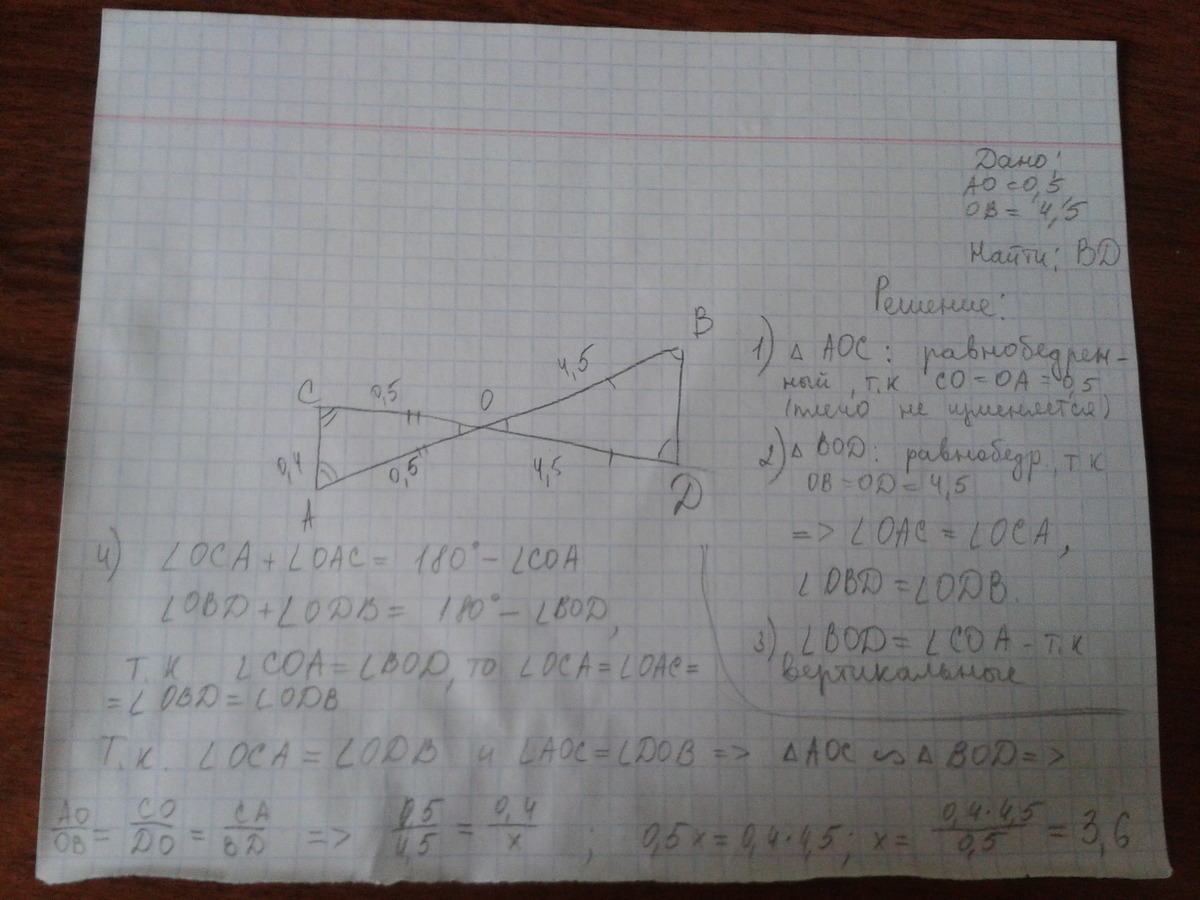 Дано:
AO = 0,5
OB = 4,5
Найти: BD
Решение:
1) △ AOC: равнобедрен-
ный, т.к CO = OA = 0,5
(плечо не изменяется)
2) △ BOD: равнобедр, т.к
OB = OD = 4,5
=> ∠OAC = ∠OCA,
∠OBD = ∠ODB.
3) ∠BOD = ∠COA - т.к
вертикальные
B
4,5
C
0,5
O
0,4
0,5
4,5
A
D
4) ∠OCA + ∠OAC = 180° - ∠COA
∠OBD + ∠ODB = 180° - ∠BOD,
т.к ∠COA = ∠BOD, то ∠OCA = ∠OAC =
= ∠OBD = ∠ODB
Т.к. ∠OCA = ∠ODB и ∠AOC = ∠DOB => △AOC ∽ △BOD =>
AO/OB = CO/DO = CA/BD => 0,5/4,5 = 0,4/x ; 0,5x = 0,4·4,5; x = 0,4·4,5/0,5 = 3,6